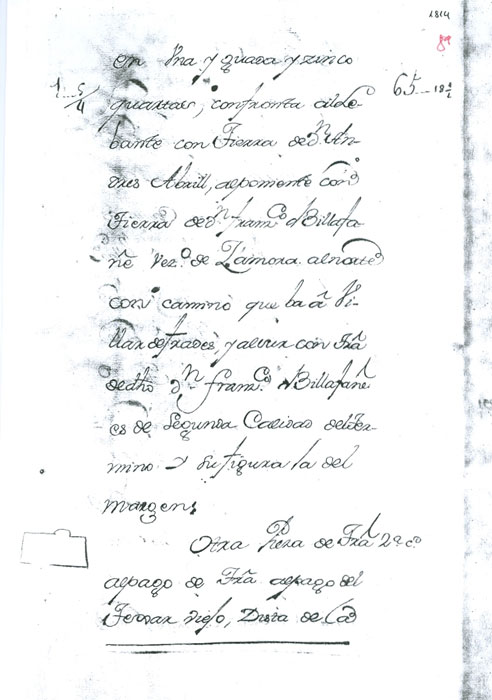 1814
en Una y quarta y zinco
1..5/4 quartas, confronta al le- 65-18 1/2
bante con Tierra de Dn An-
dres Abrill, al poniente con
Tierra de Dn franco. d Billafa-
ñe Vezo. de Zamora. al norte
con camino que ba â Vi-
llar de frades, y al sur con Tra
de dho Dn franco. d Billafañe
es de Segunda Calidad del ter-
mino y su figura la del
margen,
Otra Pieza de Tra 2a. cd
al pago de Tra al pago del
Viejo, Dista de la